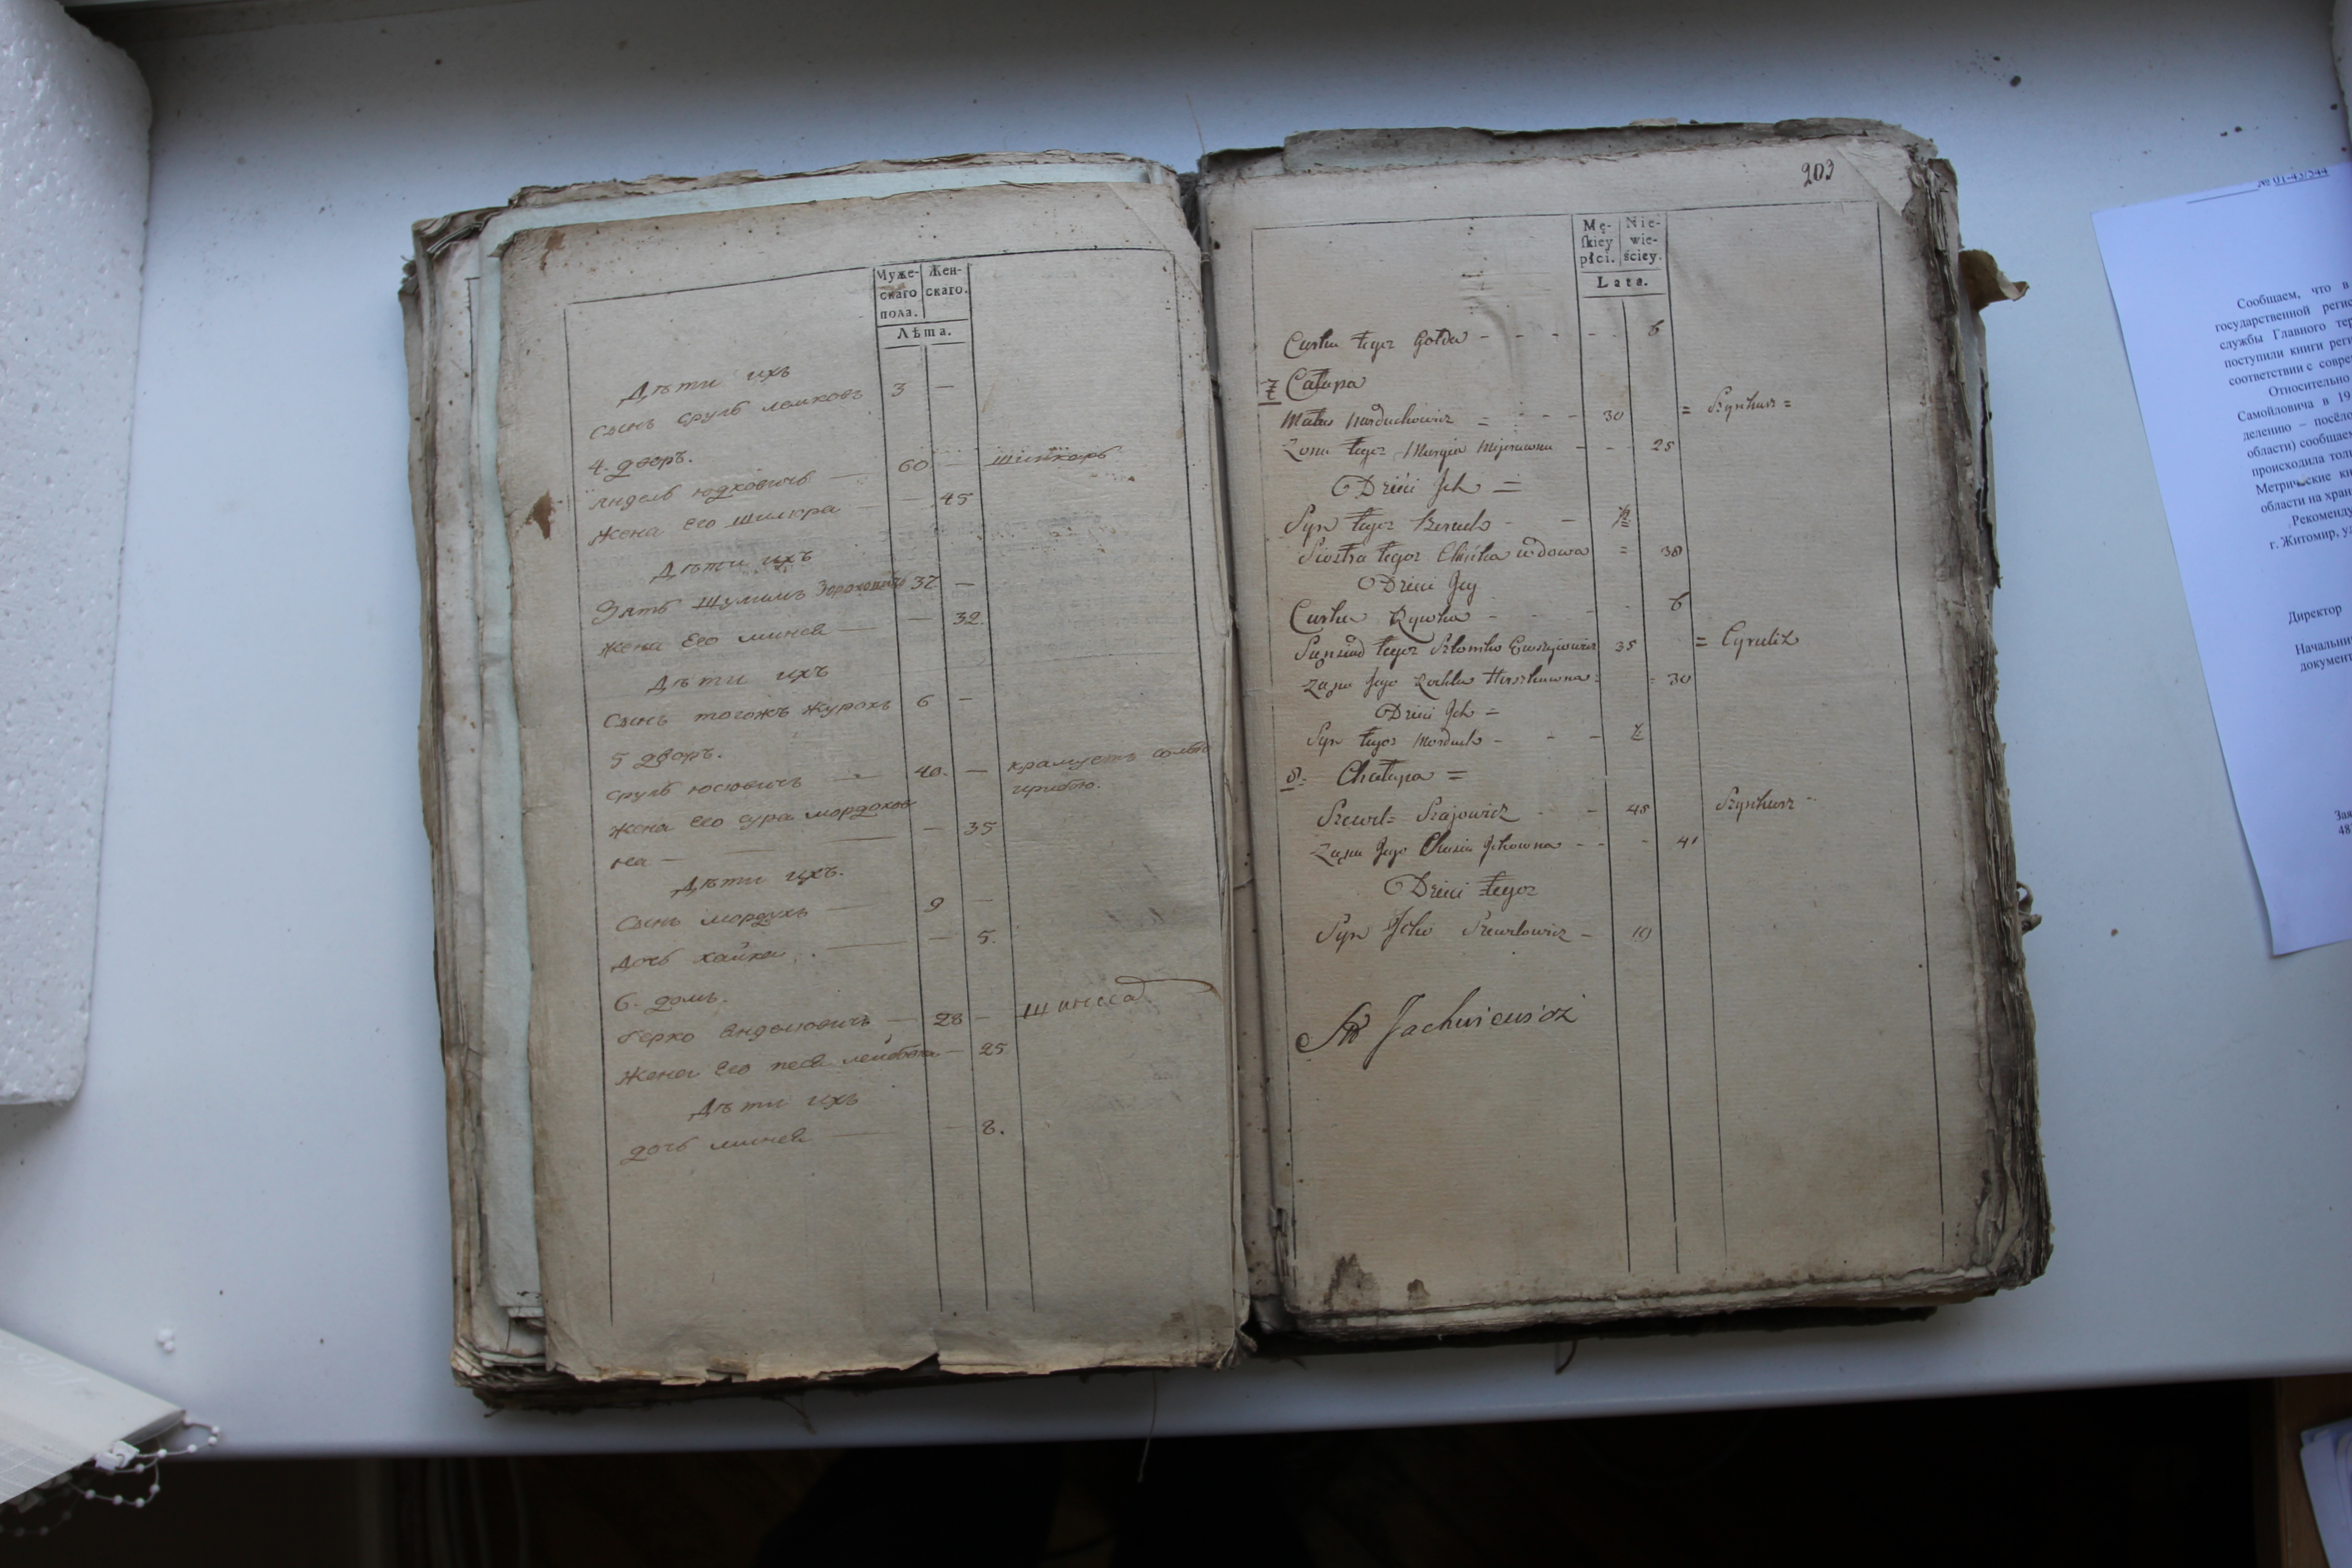 Муже-
скаго
пола.
Жен-
скаго.
Лѣта.
Дѣти ихъ
Сынъ Сруль лемковъ 3 —
4. дворъ.
Айдель Юдковичъ — 60 — шинкаръ
Жена Его — 45
Дѣти ихъ
Зять Шулимъ 37 —
Жена Его Минея — — 32.
Дѣти ихъ
Сынъ тогожъ 6 —
5 дворъ.
Сруль Юсіовичъ — 40. — крамуетъ солью
рибою.
Жена Его Сура Мордохов
на — — 35
Дѣти ихъ.
Сынъ Мордухъ — 9 —
Дочь Хайка — — 5.
6. домъ.
Герко — 28 —
Жена Его Песя — 25
Дѣти ихъ
дочь Минея — — 8.
203
Mę-
skiey
płci.
Nie-
wie-
ściey.
Lata.
Curka tegoż Gołda - - - - - 6
7 Całupa
Matus Morduchowicz = - - 30 = Szynkarz =
Żona tegoż Margia - - - 25
Dzieci Ich =
Syn tegoż Beruch - - ½
Siostra tegoż wdowa = 38
Dzieci Jey
Curka Rywka - - - 6
Sąsiad tegoż Szlomko 35 = Cyrulik
Żąna Jego Rochla Herszkuwna = 30
Dzieci Ich =
Syn tegoż Morduch - - - ½
8 = Chałupa =
Szewel = Szajowicz - - 45 Szynkarz -
Żąna Jego Chasia Ickowna - - - 41
Dzieci tegoż
Syn Icko Szewelowicz - 19
Jachwiewicz
№ 01-43/544
Сообщаем, что в
государственной реги
службы Главного тер
поступили книги реги
соответствии с совре
Относительно
Самойловича в 19
делению – посёло
области) сообщаем
происходила тол
Метрические кн
области на хран
Рекоменду
г. Житомир, у
Директор
Начальни
документ
Зая
48